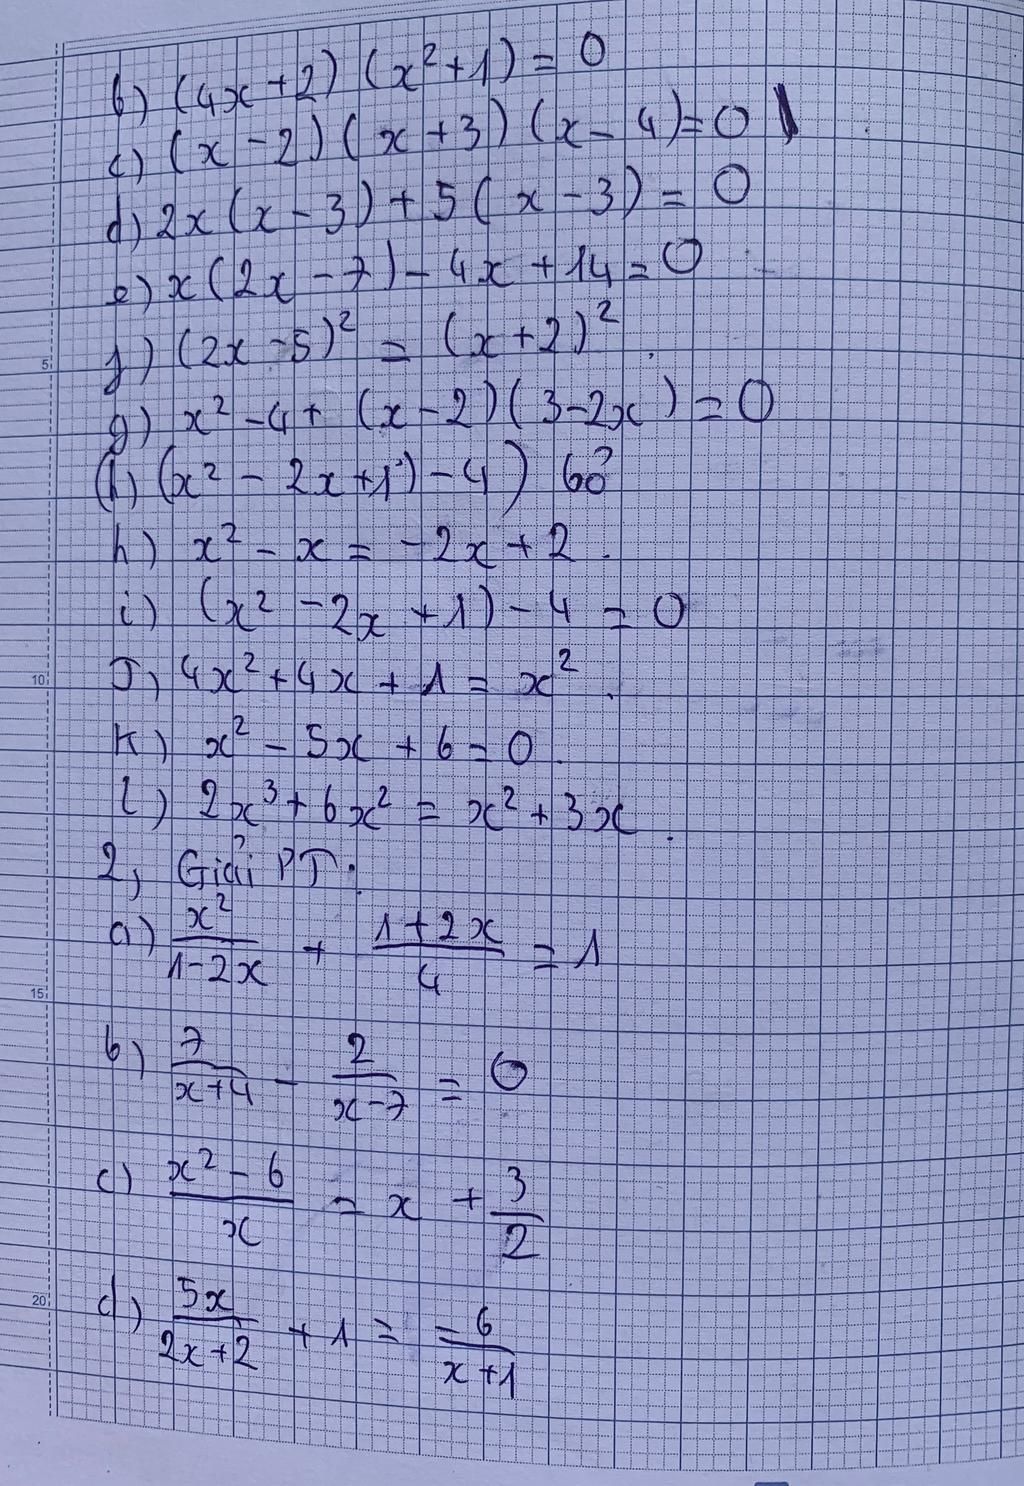 b) (4x+2) (x²+1) = 0
c) (x-2) (x+3) (x-4)=0
d) 2x(x-3)+5(x-3) = 0
e) x(2x-7)-4x+14=0
f) (2x-5)² = (x+2)².
g) x²-4+ (x-2)(3-2x)=0
(h) (x²-2x+1)-4) bỏ
h) x²-x=-2x+2.
i) (x²-2x+1)-4=0
J) 4x²+4x+1=x².
K) x²-5x+6=0.
l) 2x³+6x²=x²+3x.
2, Giải PT:
a) x²/(1-2x) + (1+2x)/4 = 1
b) 7/(x+4) - 2/(x-7) = 0
c) (x²-6)/x = x + 3/2
d) 5x/(2x+2) + 1 = -6/(x+1)
5
10
15
20